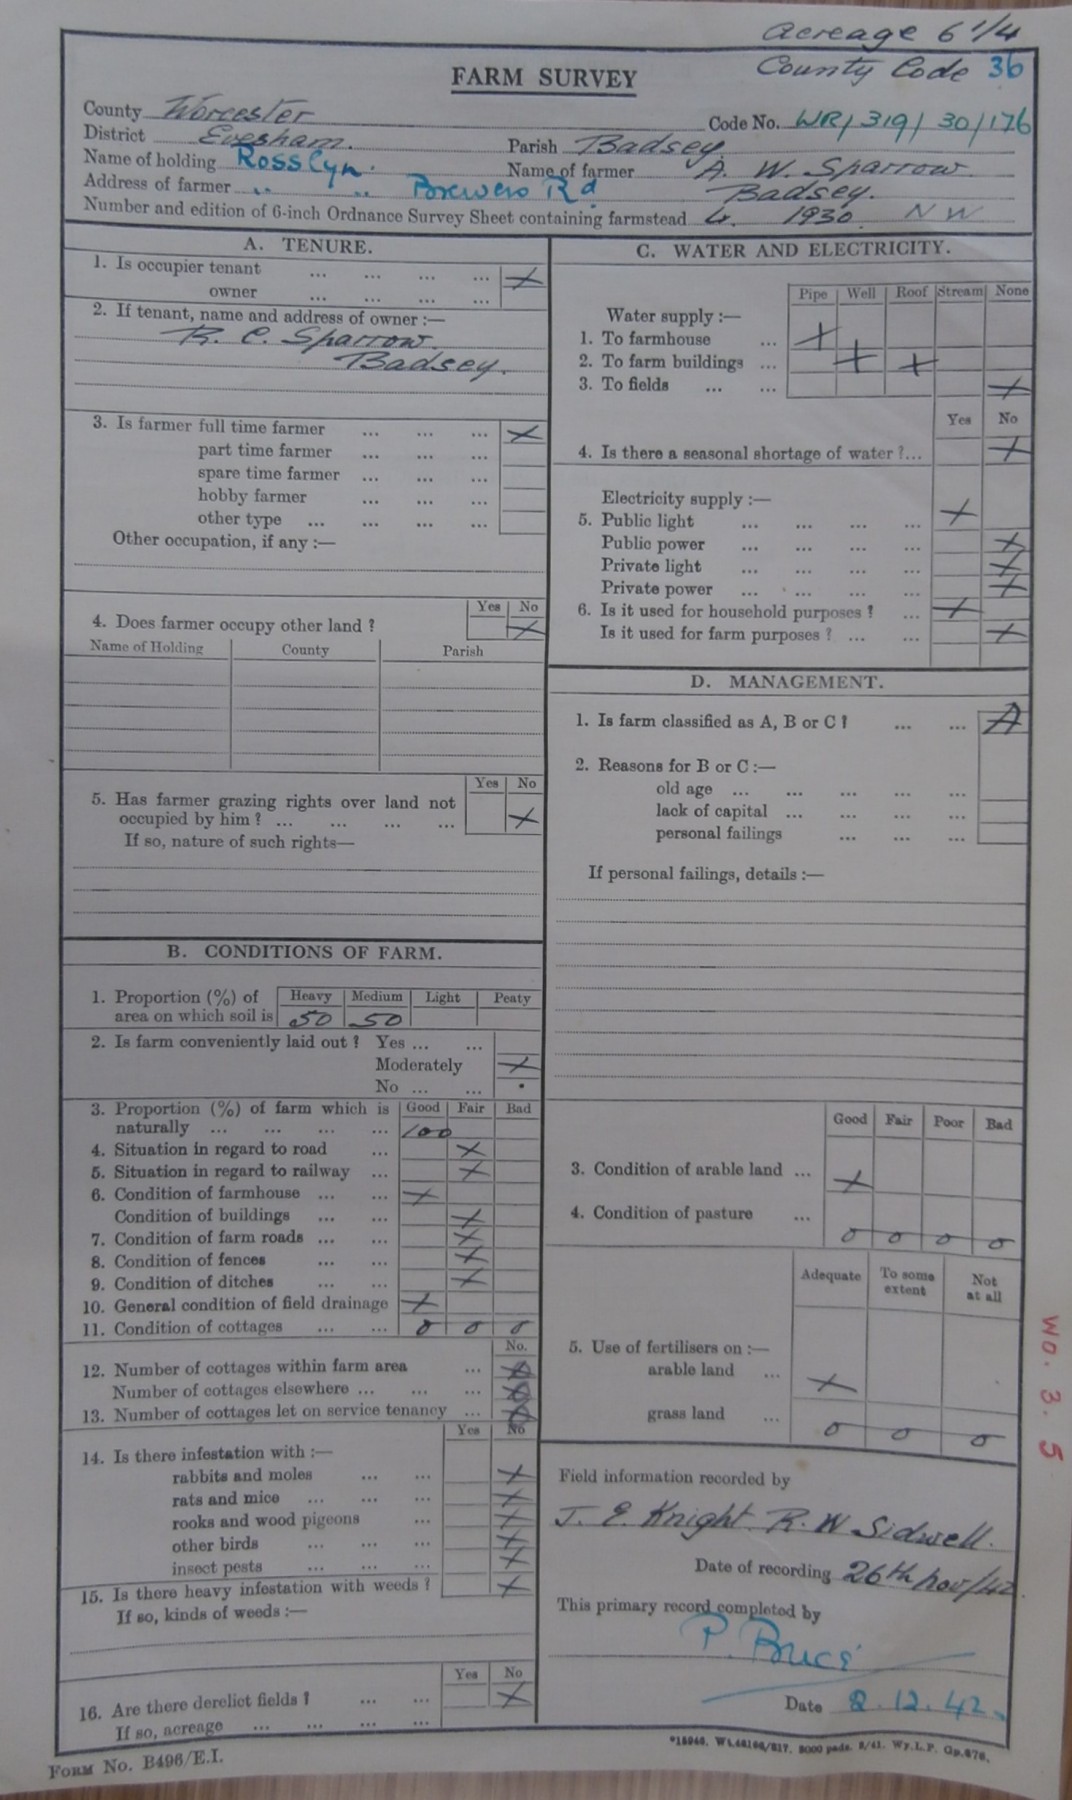 Acreage 6 1/4
County Code 36
FARM SURVEY
County Worcester
Code No. WR/319/30/176
District Evesham.
Parish Badsey.
Name of holding Rosslyn.
Name of farmer A. W. Sparrow
Address of farmer " " Rd Badsey.
Number and edition of 6-inch Ordnance Survey Sheet containing farmstead 1930. NW
A. TENURE.
1. Is occupier tenant ... ... ... ... X
owner ... ... ... ...
2. If tenant, name and address of owner :—
R. C. Sparrow.
Badsey.
3. Is farmer full time farmer ... ... ... X
part time farmer ... ... ...
spare time farmer ... ... ...
hobby farmer ... ... ...
other type ... ... ... ...
Other occupation, if any :—
Yes No
4. Does farmer occupy other land ? X
Name of Holding County Parish
Yes No
5. Has farmer grazing rights over land not
occupied by him ? ... ... ... ... X
If so, nature of such rights—
B. CONDITIONS OF FARM.
1. Proportion (%) of Heavy Medium Light Peaty
area on which soil is 50 50
2. Is farm conveniently laid out ? Yes ... ...
Moderately X
No ... ...
3. Proportion (%) of farm which is Good Fair Bad
naturally ... ... ... ... 100
4. Situation in regard to road ... X
5. Situation in regard to railway ... X
6. Condition of farmhouse ... ... X
Condition of buildings ... ... X
7. Condition of farm roads ... ... X
8. Condition of fences ... ... X
9. Condition of ditches ... ... X
10. General condition of field drainage X
11. Condition of cottages ... ... 0 0 0
No.
12. Number of cottages within farm area ...
Number of cottages elsewhere ... ... ...
13. Number of cottages let on service tenancy ...
Yes No
14. Is there infestation with :—
rabbits and moles ... ... X
rats and mice ... ... ... X
rooks and wood pigeons ... X
other birds ... ... ... X
insect pests ... ... ... X
15. Is there heavy infestation with weeds ? X
If so, kinds of weeds :—
Yes No
16. Are there derelict fields ? ... ... X
If so, acreage ... ... ... ...
FORM No. B496/E.I.
C. WATER AND ELECTRICITY.
Pipe Well Roof Stream None
Water supply :—
1. To farmhouse ... X
2. To farm buildings ... X X
3. To fields ... ... X
Yes No
4. Is there a seasonal shortage of water ?... X
Electricity supply :—
5. Public light ... ... ... ... X
Public power ... ... ... ... X
Private light ... ... ... ... X
Private power ... ... ... ... X
6. Is it used for household purposes ? ... X
Is it used for farm purposes ? ... ... X
D. MANAGEMENT.
1. Is farm classified as A, B or C ? ... ... A
2. Reasons for B or C :—
old age ... ... ... ... ...
lack of capital ... ... ... ...
personal failings ... ... ...
If personal failings, details :—
Good Fair Poor Bad
3. Condition of arable land ... X
4. Condition of pasture ... 0 0 0 0
Adequate To some extent Not at all
5. Use of fertilisers on :—
arable land ... X
grass land ... 0 0 0
Field information recorded by
J. E. Knight. R. W Sidwell.
Date of recording 26th Nov/42.
This primary record completed by
P. Bruce
Date 8.12.42.
*15940. Wt.46166/817. 8000 pads. 8/41. Wy.L.P. Gp.676.
WO. 3. 5